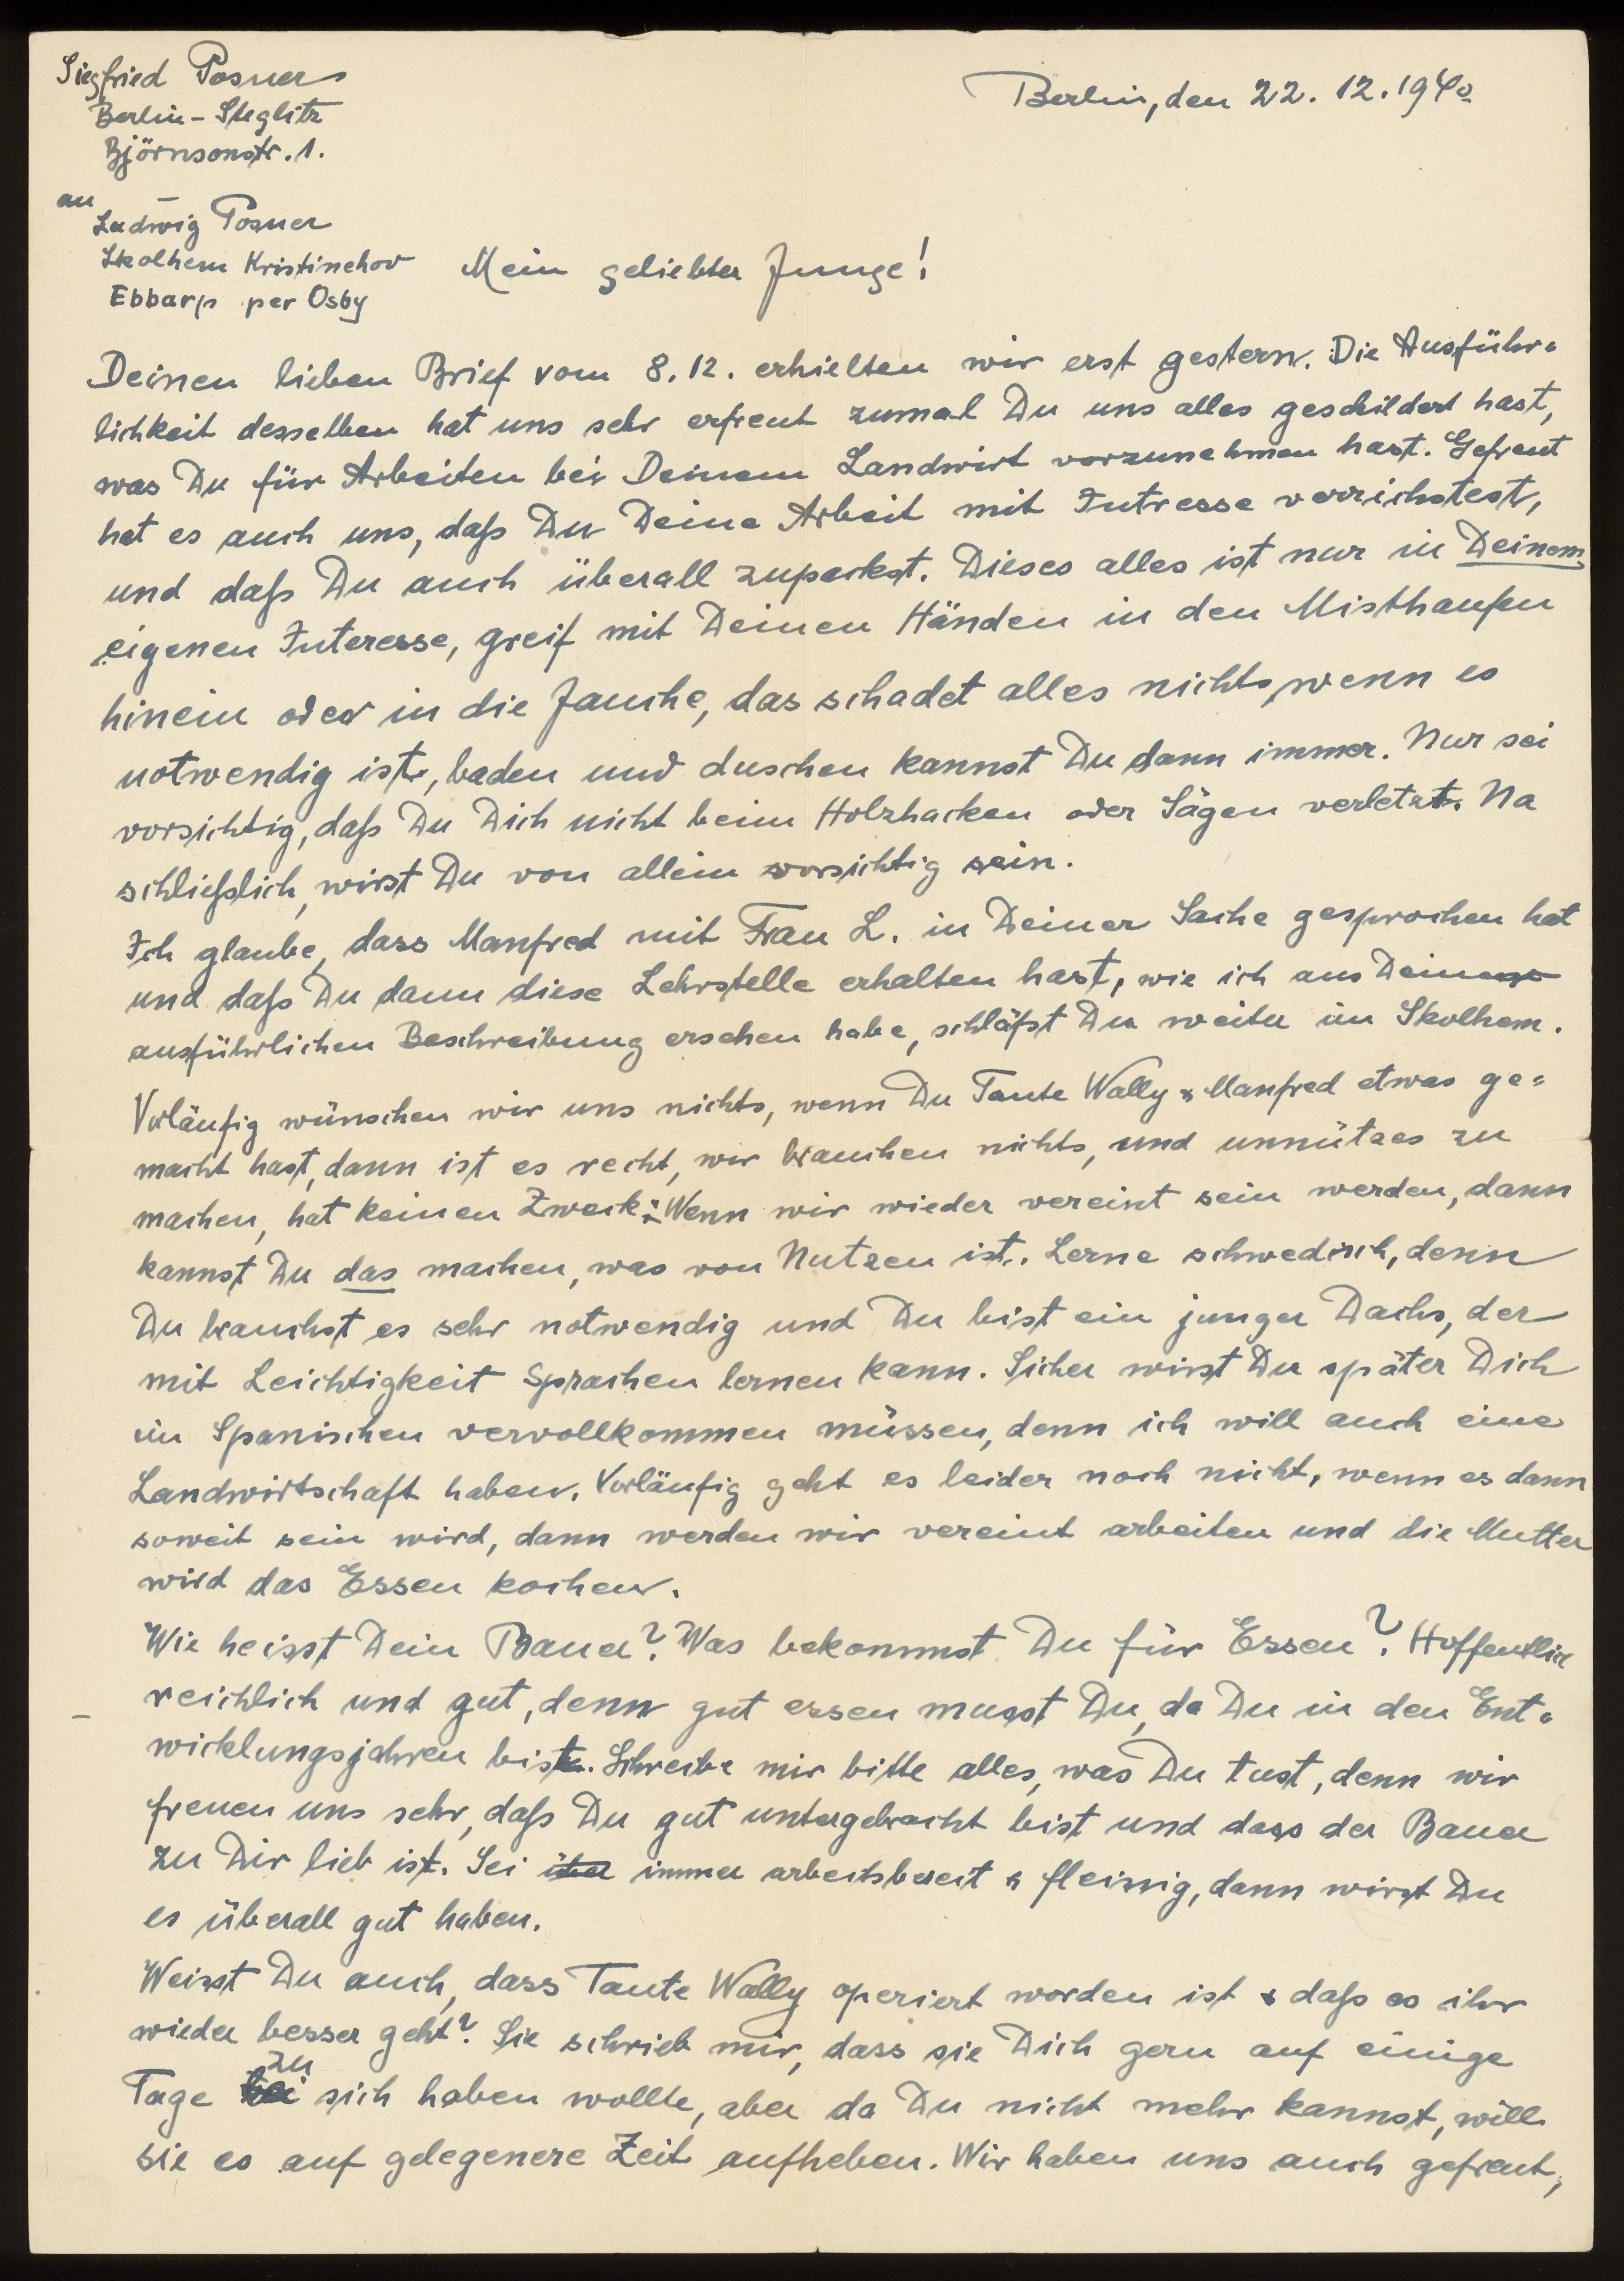 Siegfried Posner
Berlin-Steglitz
Björnsonstr. 1.
Berlin, den 22. 12. 1940
an
Ludwig Posner
Skolhem Kristinehov
Ebbarp per Osby
Mein geliebter Junge!
Deinen lieben Brief vom 8. 12. erhielten wir erst gestern. Die Ausführ-
lichkeit desselben hat uns sehr erfreut zumal Du uns alles geschildert hast,
was Du für Arbeiten bei Deinem Landwirt vorzunehmen hast. Gefreut
hat es auch uns, daß Du Deine Arbeit mit Intresse verrichstest,
und daß Du auch überall zupackst. Dieses alles ist nur in Deinem
eigenen Interesse, greif mit Deinen Händen in den Misthaufen
hinein oder in die Jauche, das schadet alles nichts, wenn es
notwendig ist, baden und duschen kannst Du dann immer. Nur sei
vorsichtig, daß Du Dich nicht beim Holzhacken oder Sägen verletzt. Na
schließlich, wirst Du von allein vorsichtig sein.
Ich glaube, dass Manfred mit Frau L. in Deiner Sache gesprochen hat
und daß Du dann diese Lehrstelle erhalten hast, wie ich aus Deiner
ausführlichen Beschreibung ersehen habe, schläfst Du weiter im Skolhem.
Vorläufig wünschen wir uns nichts, wenn Du Tante Wally & Manfred etwas ge-
macht hast, dann ist es recht, wir brauchen nichts, und unnützes zu
machen, hat keinen Zweck: Wenn wir wieder vereint sein werden, dann
kannst Du das machen, was von Nutzen ist. Lerne schwedisch, denn
Du brauchst es sehr notwendig und Du bist ein junger Dachs, der
mit Leichtigkeit Sprachen lernen kann. Sicher wirst Du später Dich
im Spanischen vervollkommen müssen, denn ich will auch eine
Landwirtschaft haben. Vorläufig geht es leider noch nicht, wenn es dann
soweit sein wird, dann werden wir vereint arbeiten und die Mutter
wird das Essen kochen.
Wie heisst Dein Bauer? Was bekommst Du für Essen? Hoffentlich
reichlich und gut, denn gut essen musst Du, da Du in den Ent-
wicklungsjahren bist. Schreibe mir bitte alles, was Du tust, denn wir
freuen uns sehr, daß Du gut untergebracht bist und dass der Bauer
zu Dir lieb ist. Sei über immer arbeitsbereit & fleissig, dann wirst Du
es überall gut haben.
Weisst Du auch, dass Tante Wally operiert worden ist & daß es ihr
wieder besser geht? Sie schrieb mir, dass sie Dich gern auf einige
Tage bei zu sich haben wollte, aber da Du nicht mehr kannst, will
sie es auf gelegenere Zeit aufheben. Wir haben uns auch gefreut,